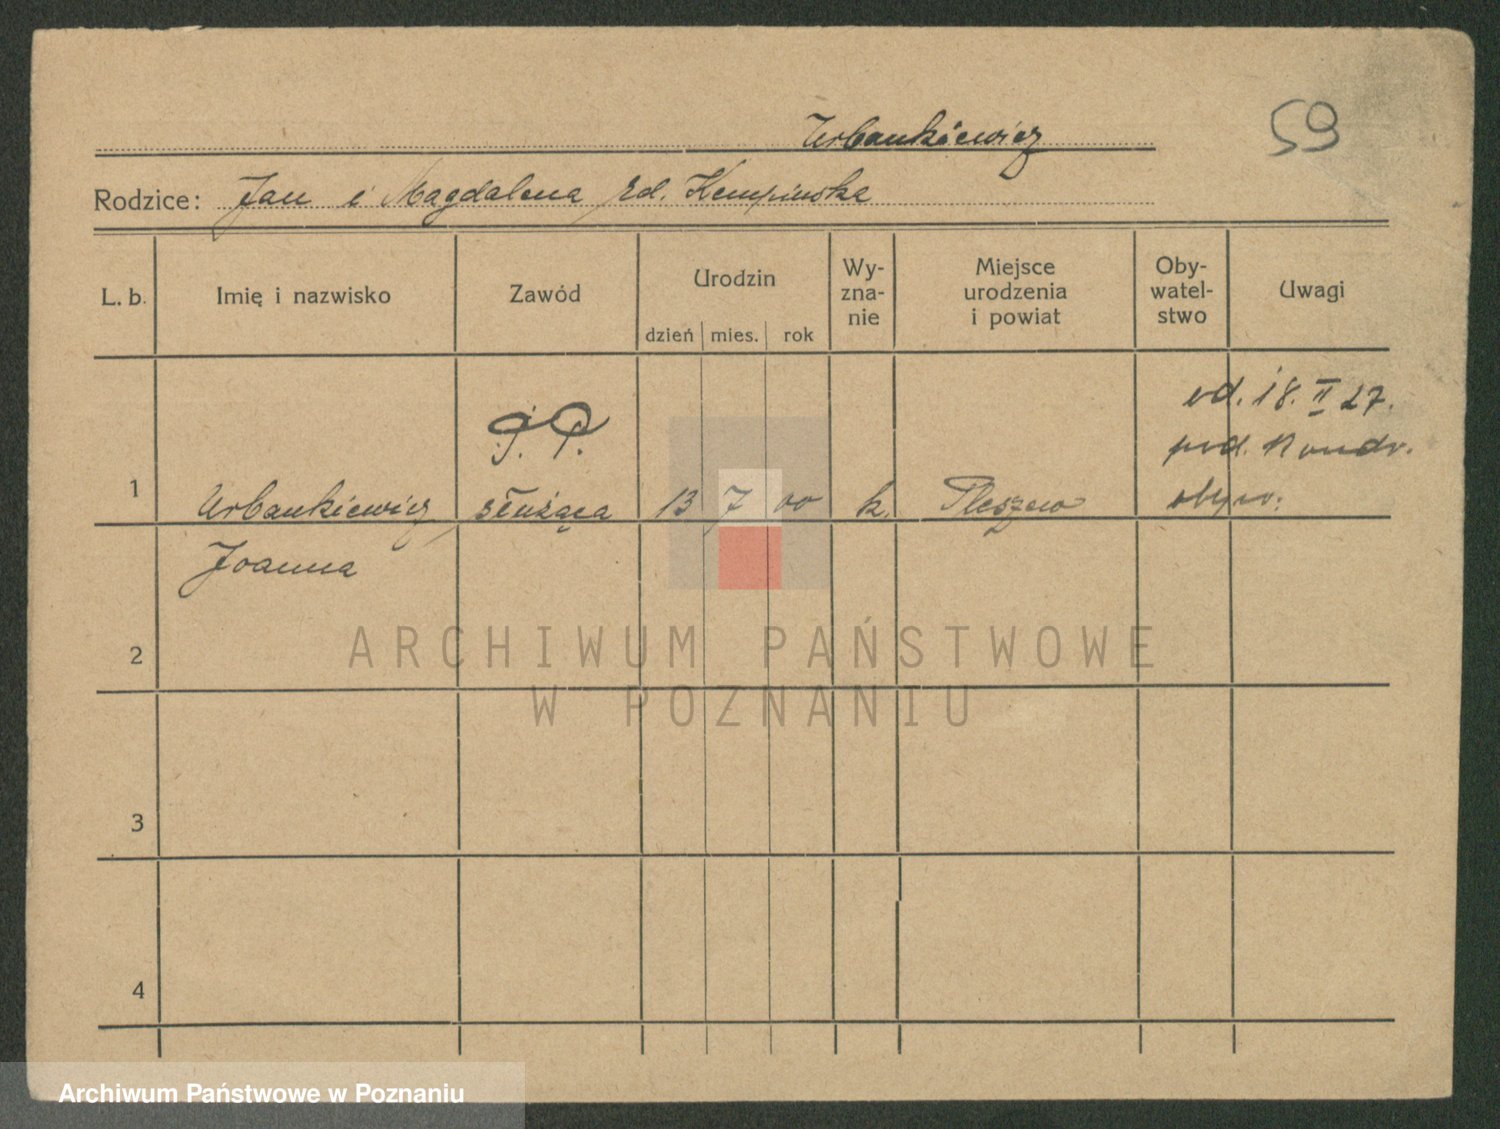 Urbankiewicz
59
Rodzice: Jan i Magdalena zd. Kempińska
L. b.
Imię i nazwisko
Zawód
Urodzin
dzień mies. rok
Wy-
zna-
nie
Miejsce
urodzenia
i powiat
Oby-
watel-
stwo
Uwagi
od. 18. II 27.
obyw.
1 Urbankiewicz służąca 13 7 00 k. Pleszew
Joanna
2
3
4
ARCHIWUM PAŃSTWOWE
W POZNANIU
Archiwum Państwowe w Poznaniu